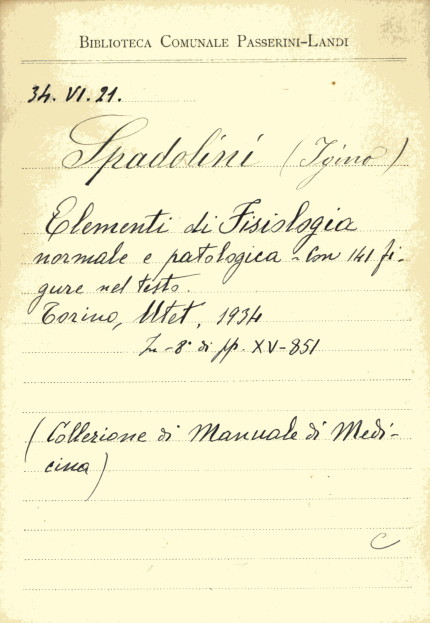 BIBLIOTECA COMUNALE PASSERINI-LANDI
34. VI. 21.
Spadolini (Igino)
Elementi di Fisiologia
normale e patologica - Con 141 fi-
gure nel testo.
Torino, Utet, 1934
In-8° di pp. XV-851
(Collezione di Manuale di Medi-
cina)
C